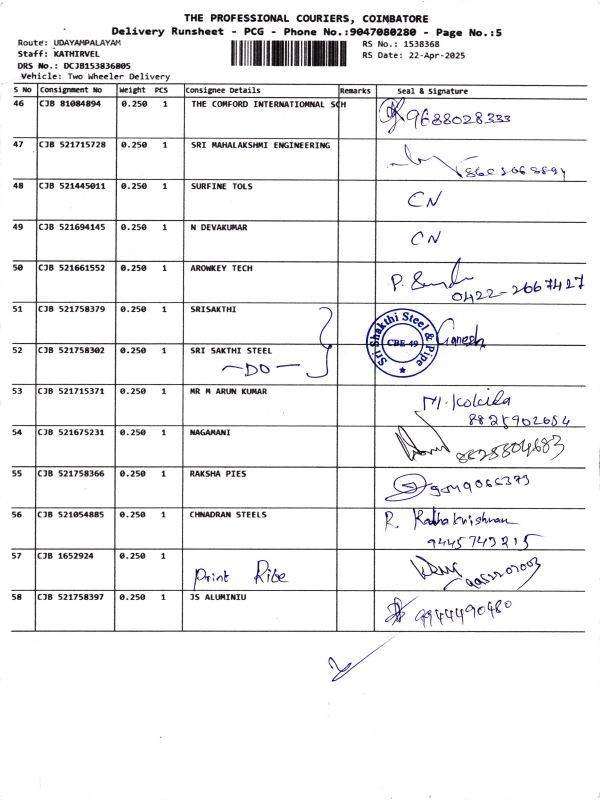 THE PROFESSIONAL COURIERS, COIMBATORE
Delivery Runsheet - PCG - Phone No.:9047080280 - Page No.:5
Route: UDAYAMPALAYAM
Staff: KATHIRVEL
DRS No.: DCJB153836805
Vehicle: Two Wheeler Delivery
RS No.: 1538368
RS Date: 22-Apr-2025
S No Consignment No Weight PCS Consignee Details Remarks Seal & Signature
46 CJB 81084894 0.250 1 THE COMFORD INTERNATIOMNAL SCH 9688028333
47 CJB 521715728 0.250 1 SRI MAHALAKSHMI ENGINEERING
48 CJB 521445011 0.250 1 SURFINE TOLS CN
49 CJB 521694145 0.250 1 N DEVAKUMAR CN
50 CJB 521661552 0.250 1 AROWKEY TECH P. 0422-2667427
51 CJB 521758379 0.250 1 SRISAKTHI Sri Shakthi Steel & Pipe CBE-49 Ganesh
52 CJB 521758302 0.250 1 SRI SAKTHI STEEL
-DO-
53 CJB 521715371 0.250 1 MR M ARUN KUMAR M. Kokila
8825902654
54 CJB 521675231 0.250 1 NAGAMANI 8825804683
55 CJB 521758366 0.250 1 RAKSHA PIES 9019066373
56 CJB 521054885 0.250 1 CHNADRAN STEELS R. Radhakrishnan
9445743215
57 CJB 1652924 0.250 1 Print Ribe
58 CJB 521758397 0.250 1 JS ALUMINIU 9944490480